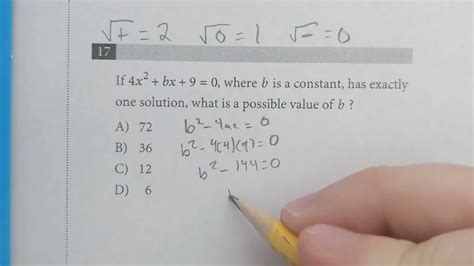 √+ = 2 √0 = 1 √- = 0
17
If 4x² + bx + 9 = 0, where b is a constant, has exactly
one solution, what is a possible value of b ?
A) 72 b² - 4ac = 0
B) 36 b² - 4(4)(9) = 0
C) 12 b² - 144 = 0
D) 6